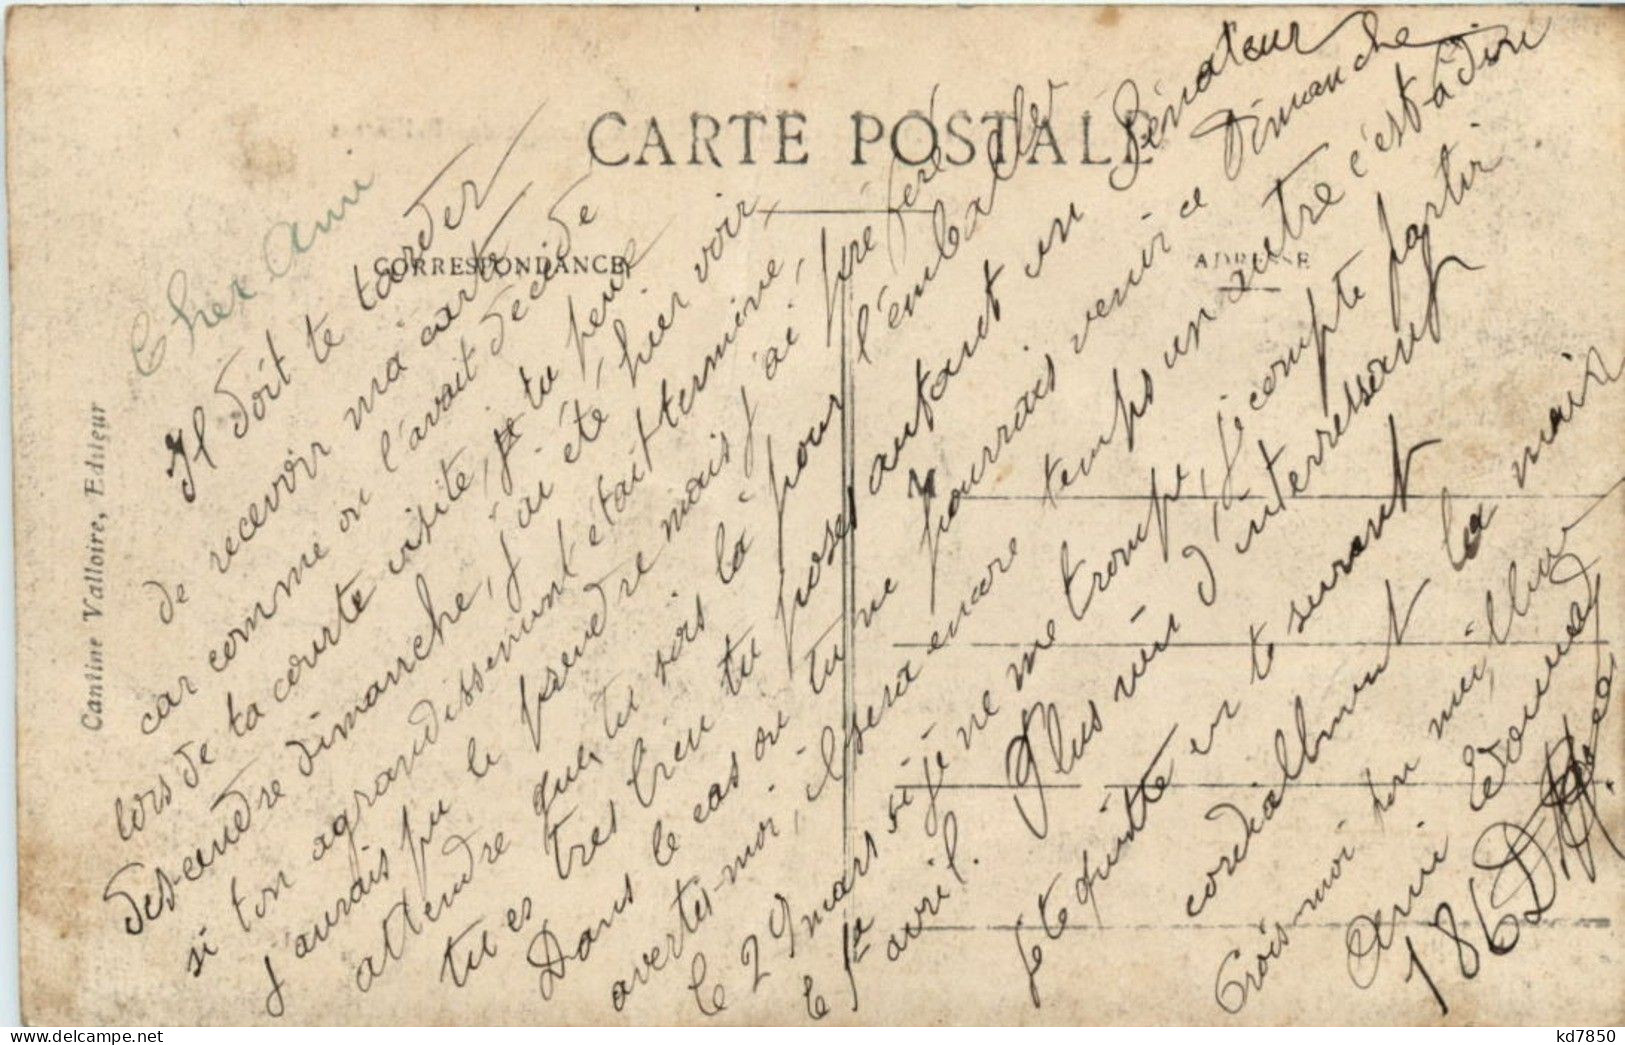 CARTE POSTALE
CORRESPONDANCE
ADRESSE
Cantine Valloire, Editeur
Cher Ami
Il doit te tarder
de recevoir ma carte
car comme on l'avait décidé
lors de ta courte visite, tu pense
descendre dimanche, j'ai été hier voir,
si ton agrandissement était terminé,
j'aurais pu le prendre mais j'ai préféré
attendre que tu sois là pour l'emballer
tu es très bien tu poses autant un Sénateur
Dans le cas ou tu ne pourrais venir ce Dimanche
avertis-moi, il sera encore temps un autre c'est-à-dire
le 29 mars si je ne me trompe, je compte partir
le 1er avril. Plus rien d'interressant
je te quitte en te serrant
cordialement la main
Crois-moi ton meilleur
Ami Edouard
186
kd7850